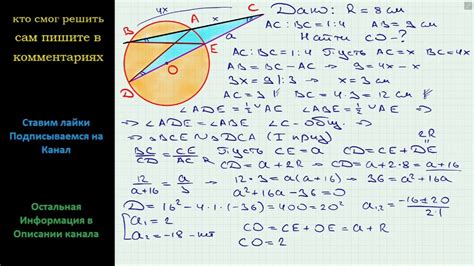 кто смог решить
сам пишите в
комментариях
Ставим лайки
Подписываемся на
Канал
Остальная
Информация в
Описании канала
4x
A
x
C
B
E
a
O
D
Дано: R = 8 см
AC : BC = 1:4 AB = 9 см
Найти CO - ?
AC : BC = 1:4 Пусть AC = x BC = 4x
AB = BC - AC ⇒ 9 = 4x - x
3x = 9 | :3 → x = 3 см
AC = 3 BC = 4·3 = 12 см
∠ADE = ½ ∪ AE ∠ABE = ½ ∪ AE ⇒
⇒ ∠ADE = ∠ABE ∠C - общ. ⇒
⇒ △BCE ∾ △DCA (I приз) 2R
BC/CD = CE/AC Пусть CE = a CD = CE + DE
CD = a + 2R ⇒ CD = a + 2·8 = a + 16
12/a+16 = a/3 ⇒ 12·3 = a(a+16) ⇒ 36 = a² + 16a
a² + 16a - 36 = 0
D = 16² - 4·1·(-36) = 400 = 20² a₁,₂ = -16±20/2·1
a₁ = 2
a₂ = -18
CO = CE + OE = a + R
CO = 2